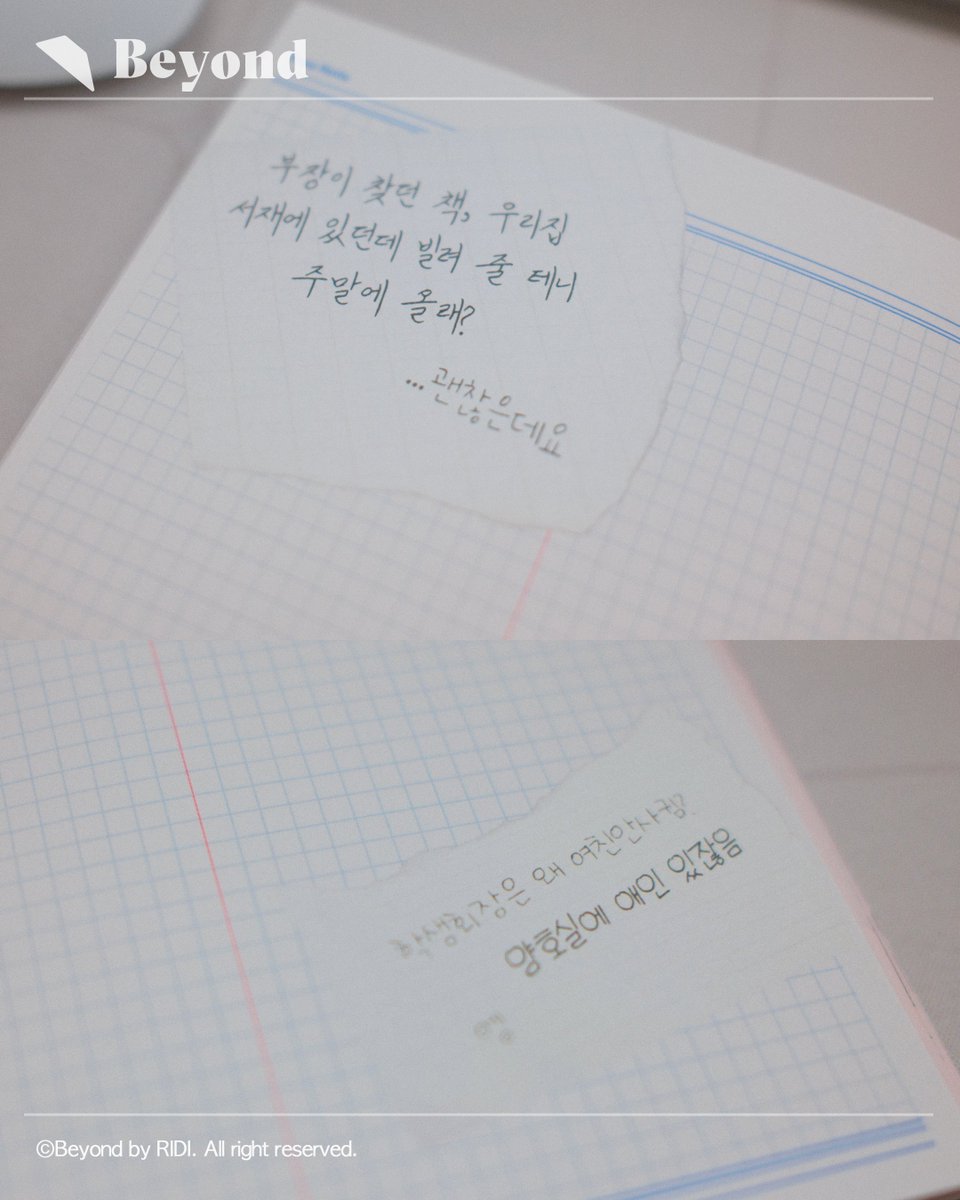 Beyond
부장이 찾던 책, 우리집
서재에 있던데 빌려 줄 테니
주말에 올래?
...괜찮은데요
학생회장은 왜 여친안사귐?
양호실에 애인 있잖음
엥
©Beyond by RIDI. All right reserved.